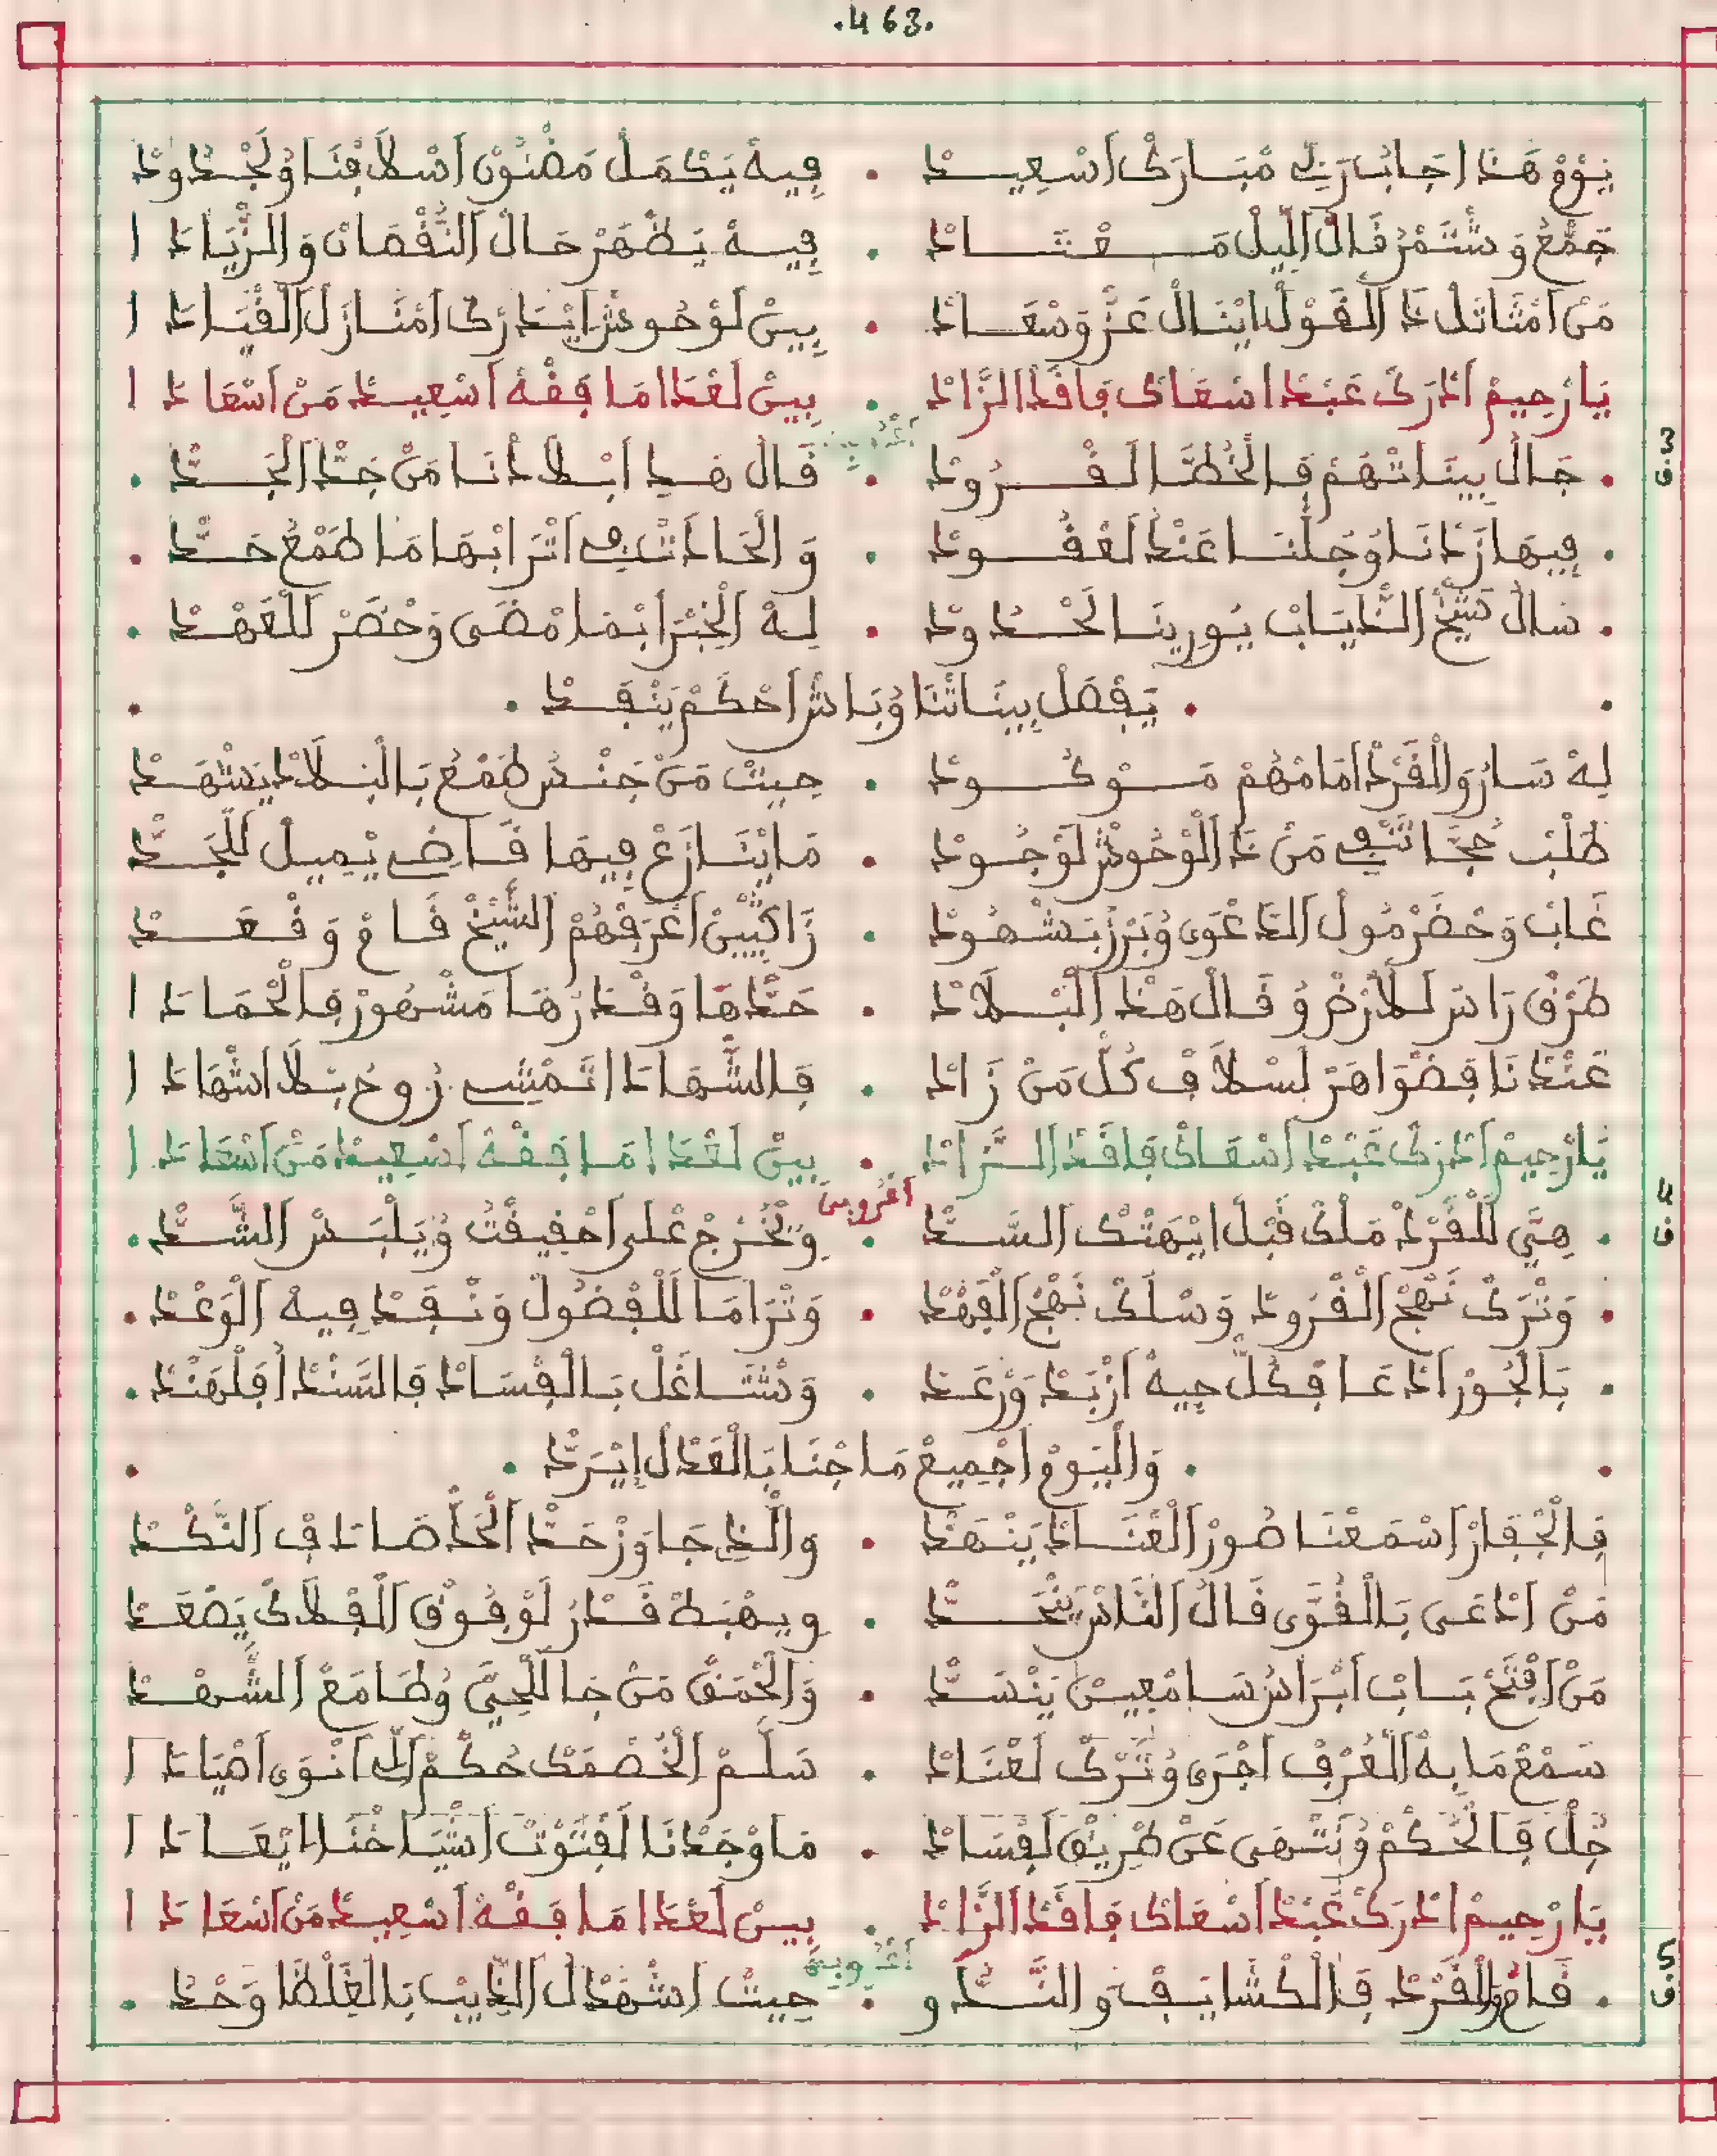 .463.
يَوْمْ هَذَا جَابْ رَبِّي مْبَارَكْ اَسْعِيدْ • فِيهْ يَكْمَلْ مَضْنُونْ اَسْلَافْنَا وُلَجْدُودْ
جَمّعْ وَشْتَمّرْ قَالْ اَلِّيلْ مَعْتَادْ • فِيهْ يَظْهَرْ حَالْ اَلنّقْصَانْ وَالزّيَادَ ا
مَنْ اَمْثَاتَلْ ذَ اَلْقَوْلْ اِيْنَالْ عَزّ وَسْعَادْ • بِينْ لَوْحُوشْ اِيْدَرَكْ اَمْنَازَلْ اَلْقْيَادَ ا
يَا رْحِيمْ اَدْرَكْ عَبْدْ اَسْعَاكْ فَاقَدْ اَلزَّادْ • بِينْ لَعْدَا مَا فَقْهْ اَسْعِيدْ مَنْ اَسْعَادَ ا
3 ق
• جَالْ بِينَاتْهَمْ فَالْخُطَّا الَقْرُودْ • قَالْ هَدِي اَبْلَادْنَا مَنْ جَدّ اَلْجَدّ •
• فِيهَا زَدْنَا وُجَلْنَا عَنْدْ لَعْقُودْ • وَالْحَادَثْ فِي اَتْرَابْهَا مَا طْمَعْ حَدّ •
• سَالْ شَيْخْ اَلذّيَابْ يُورِينَا لَحْدُودْ • لِهْ اَلْخْبَرْ اَبْمَا مْضَى وَحْضَرْ لَلْعَهْدْ •
• يَفْصَلْ بِينَاتْنَا وُبَاشْ اَحْكَمْ يَنْفَدْ •
لِهْ سَارُ وَالْقَرْدْ اَمَامْهُمْ مَوْكُودْ • حِيتْ مَنْ جَنْسْ طْمَعْ بَالْبْلَادْ يَشْهَدْ
طَلْبْ حُجَّا تَنْفِي مَنْ ذَ اَلْوْحُوشْ لَوْجُودْ • مَا يْنَازَعْ فِيهَا قَاضِي يْمِيلْ لَلْجَدّ
غَابْ وَحْضَرْ مُولْ اَلدَّعْوَى وُبَرْزْ بَشْهُودْ • زَاكِيِّينْ اَعْرَفْهُمْ اَلشّيْخْ قَامْ وَقْعَدْ
طَرْقْ رَاسْ لَلَارْضْ وُ قَالْ هَذْ اَلْبْلَادْ • حَدّهَا وَقْدَرْهَا مَشْهُورْ فَالْحْمَادَ ا
عَنْدْنَا فَضْوَاهَرْ لَسْلَافْ كُلّ مَنْ زَادْ • فَالشّهَادَ ا تَمْشِي رُوحْ بْلَا اَشْهَادَ ا
يَا رْحِيمْ اَدْرَكْ عَبْدْ اَسْعَاكْ فَاقَدْ اَلزَّادْ • بِينْ لَعْدَا مَا فَقْهْ اَسْعِيدْ مَنْ اَسْعَادَ ا
4 ق
اَغْرُوبِي
• هِيَّ لَلْقَرْدْ مَلْكْ قَبْلْ اَيْهَتْكْ اَلسَّدّ • وَيْخْرُجْ عْلَى اَحْقِيقْتُ وُيَلْبَسْ اَلشَّدّ •
• وَتْرَكْ نَهْجْ اَلْقْرُودْ وَسْلَكْ نَهْجْ اَلْفَهْدْ • وَتْرَامَا لَلْفْضُولْ وَنْفَدْ فِيهْ اَلْوَعْدْ •
• بَالْجُوْرْ اَدْعَا فْكُلّ جِيهْ اَزْبَدْ وَرْعَدْ • وَشْتَاغَلْ بَالْفْسَادْ فَالسَّنْدْ اُفَلْهَنْدْ •
• وَالْيَوْمْ اَجْمِيعْ مَا جْنَا بَالْعَدْلْ اِيْرَدّ •
فَالْجْفَارْ اَسْمَعْنَا صُورْ اَلْعْنَادْ يَنْهَدْ • وَالّذِي جَاوَزْ حَدّ اَلْخْصَادَ فِي اَلنّكْدْ
مَنْ اَدْعَى بَالْقُوَّى قَالْ اَلنَّاسْ يَنْحَدّ • وِيهْبَطْ قَدْرُ لَوْ فُوقْ اَلْفْلَاكْ يَصْعَدْ
مَنْ اَفْتَحْ بَابْ اَبْرَاسُ سَامْعِينْ يَنْسَدّ • وَالْحْمَقْ مَنْ جَا لَلْحَيّ وُطَامَعْ اَلشَّهْدْ
سَمْعْ مَا بِهْ اَلْعُرْفْ اَجْرَى وُتْرَكْ لَعْنَادْ • سَلَّمْ اَلْخَصْمَكْ حُكْمْ اَللِّي اَنْوَى اَصْيَادَ ا
جُلْ فَالْحْكُمْ وُنْتْهَى عَنْ طْرِيقْ لَفْسَادْ • مَا وْجَدْنَا لَفْتَوْتْ اَشْيَاخْنَا اِيْعَادَ ا
يَا رْحِيمْ اَدْرَكْ عَبْدْ اَسْعَاكْ فَاقَدْ اَلزَّادْ • بِينْ لَعْدَا مَا فَقْهْ اَسْعِيدْ مَنْ اَسْعَادَ ا
5 ق
• قَامْ اَلْقَرْدْ فَالْكْشَايَفْ وَالنَّدّ و • حِيتْ اَشْهَدْ لْ اَلذِّيبْ بَالْغَلْظَا وَحْدُ •